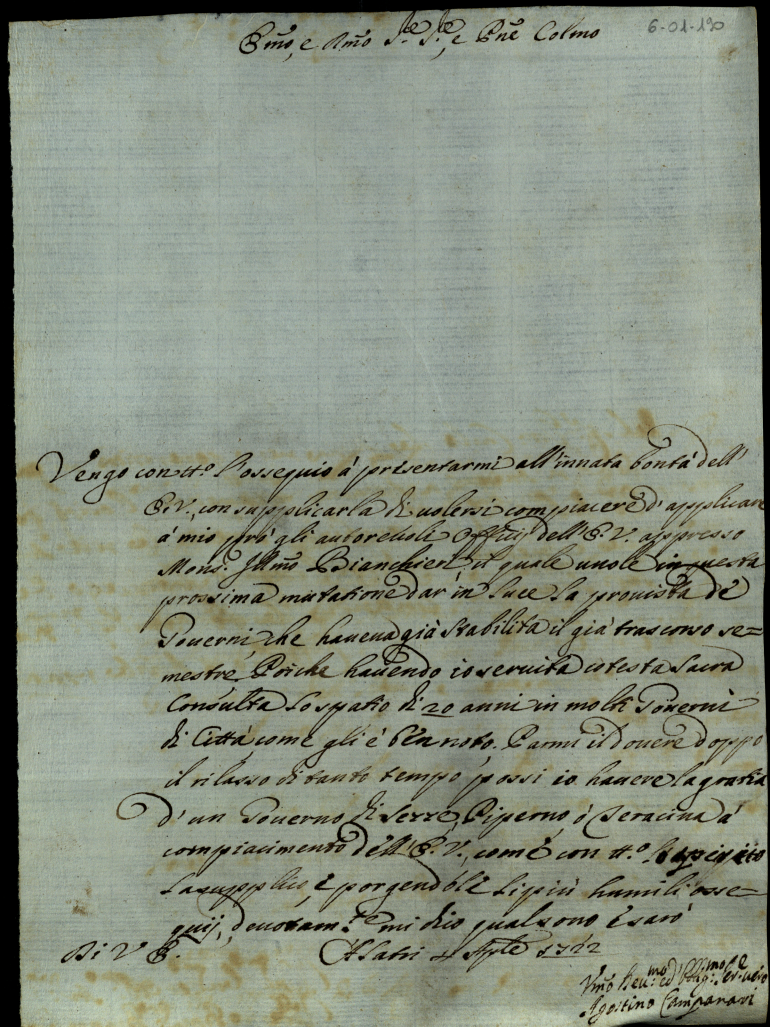 6-01-190
Emo, e Rmo Sre Sre, e Pne Colmo
Vengo con tto l'ossequio à presentarmi all'innata bontà dell'
E.V., con supplicarla di volersi compiacere d'applicare
à mio prò gli autorevoli Offitij dell'E.V. appresso
Mons. Illmo Bianchieri, il quale vuole in questa
prossima mutatione dar in luce la provista de
Governi, che haveva già stabilita il già trascorso se=
mestre. Poiche havendo io servita cotesta Sacra
Consulta lo spatio di 20 anni in molti Governi
di Città, come gli è ben noto. Parmi il dovere doppo
il rilasso di tanto tempo, possi io havere la gratia
d'un Governo di Sezze, Piperno, ò Teracina à
compiacimento dell'E.V., come con tto
la supplico, è porgendole li più humili osse=
quij, devotamte mi dico qual sono è sarò
Di V E.
Alatri 4 Aple 1722
Vmo Devmo ed Obligmo Serre vero
Agostino Campanari